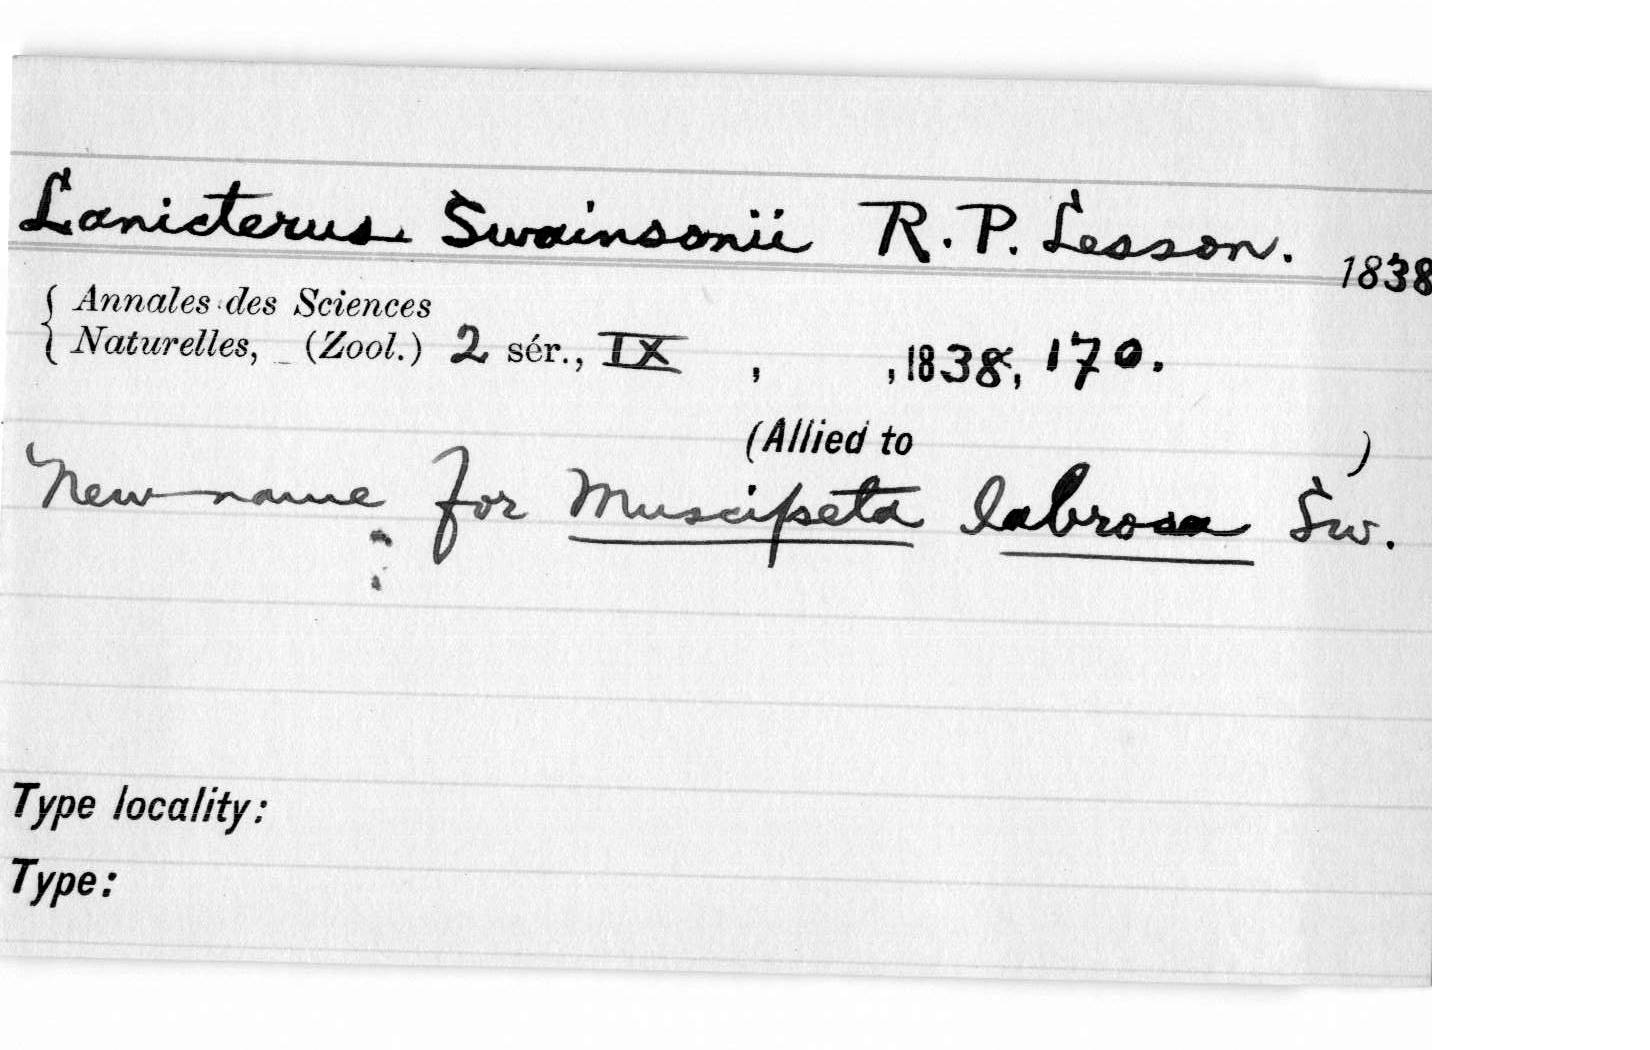 Lanicterus Swainsonii R. P. Lesson. 1838
Annales des Sciences
Naturelles, (Zool.) 2 sér., IX , , 1838, 170.
(Allied to )
New name for Muscipeta labrosa Sw.
Type locality:
Type: